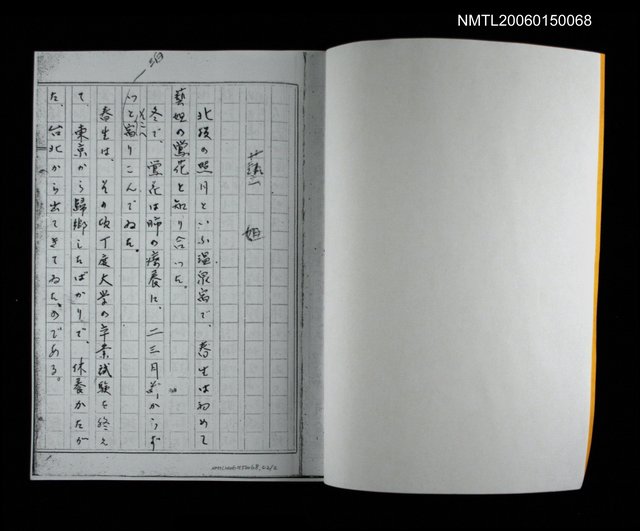 NMTL20060150068
藝妲
北投の照月といふ温泉宿で、春生は初めて
藝妲の鶯花と知り合った。
冬で、鶯花は肺の療養に、二三月前からず
っと宿りこんでゐた。
春生は、その頃丁度大学の卒業試験を終え
て、東京から歸郷したばかりで、休養かたが
た、台北から出てきてゐたのである。